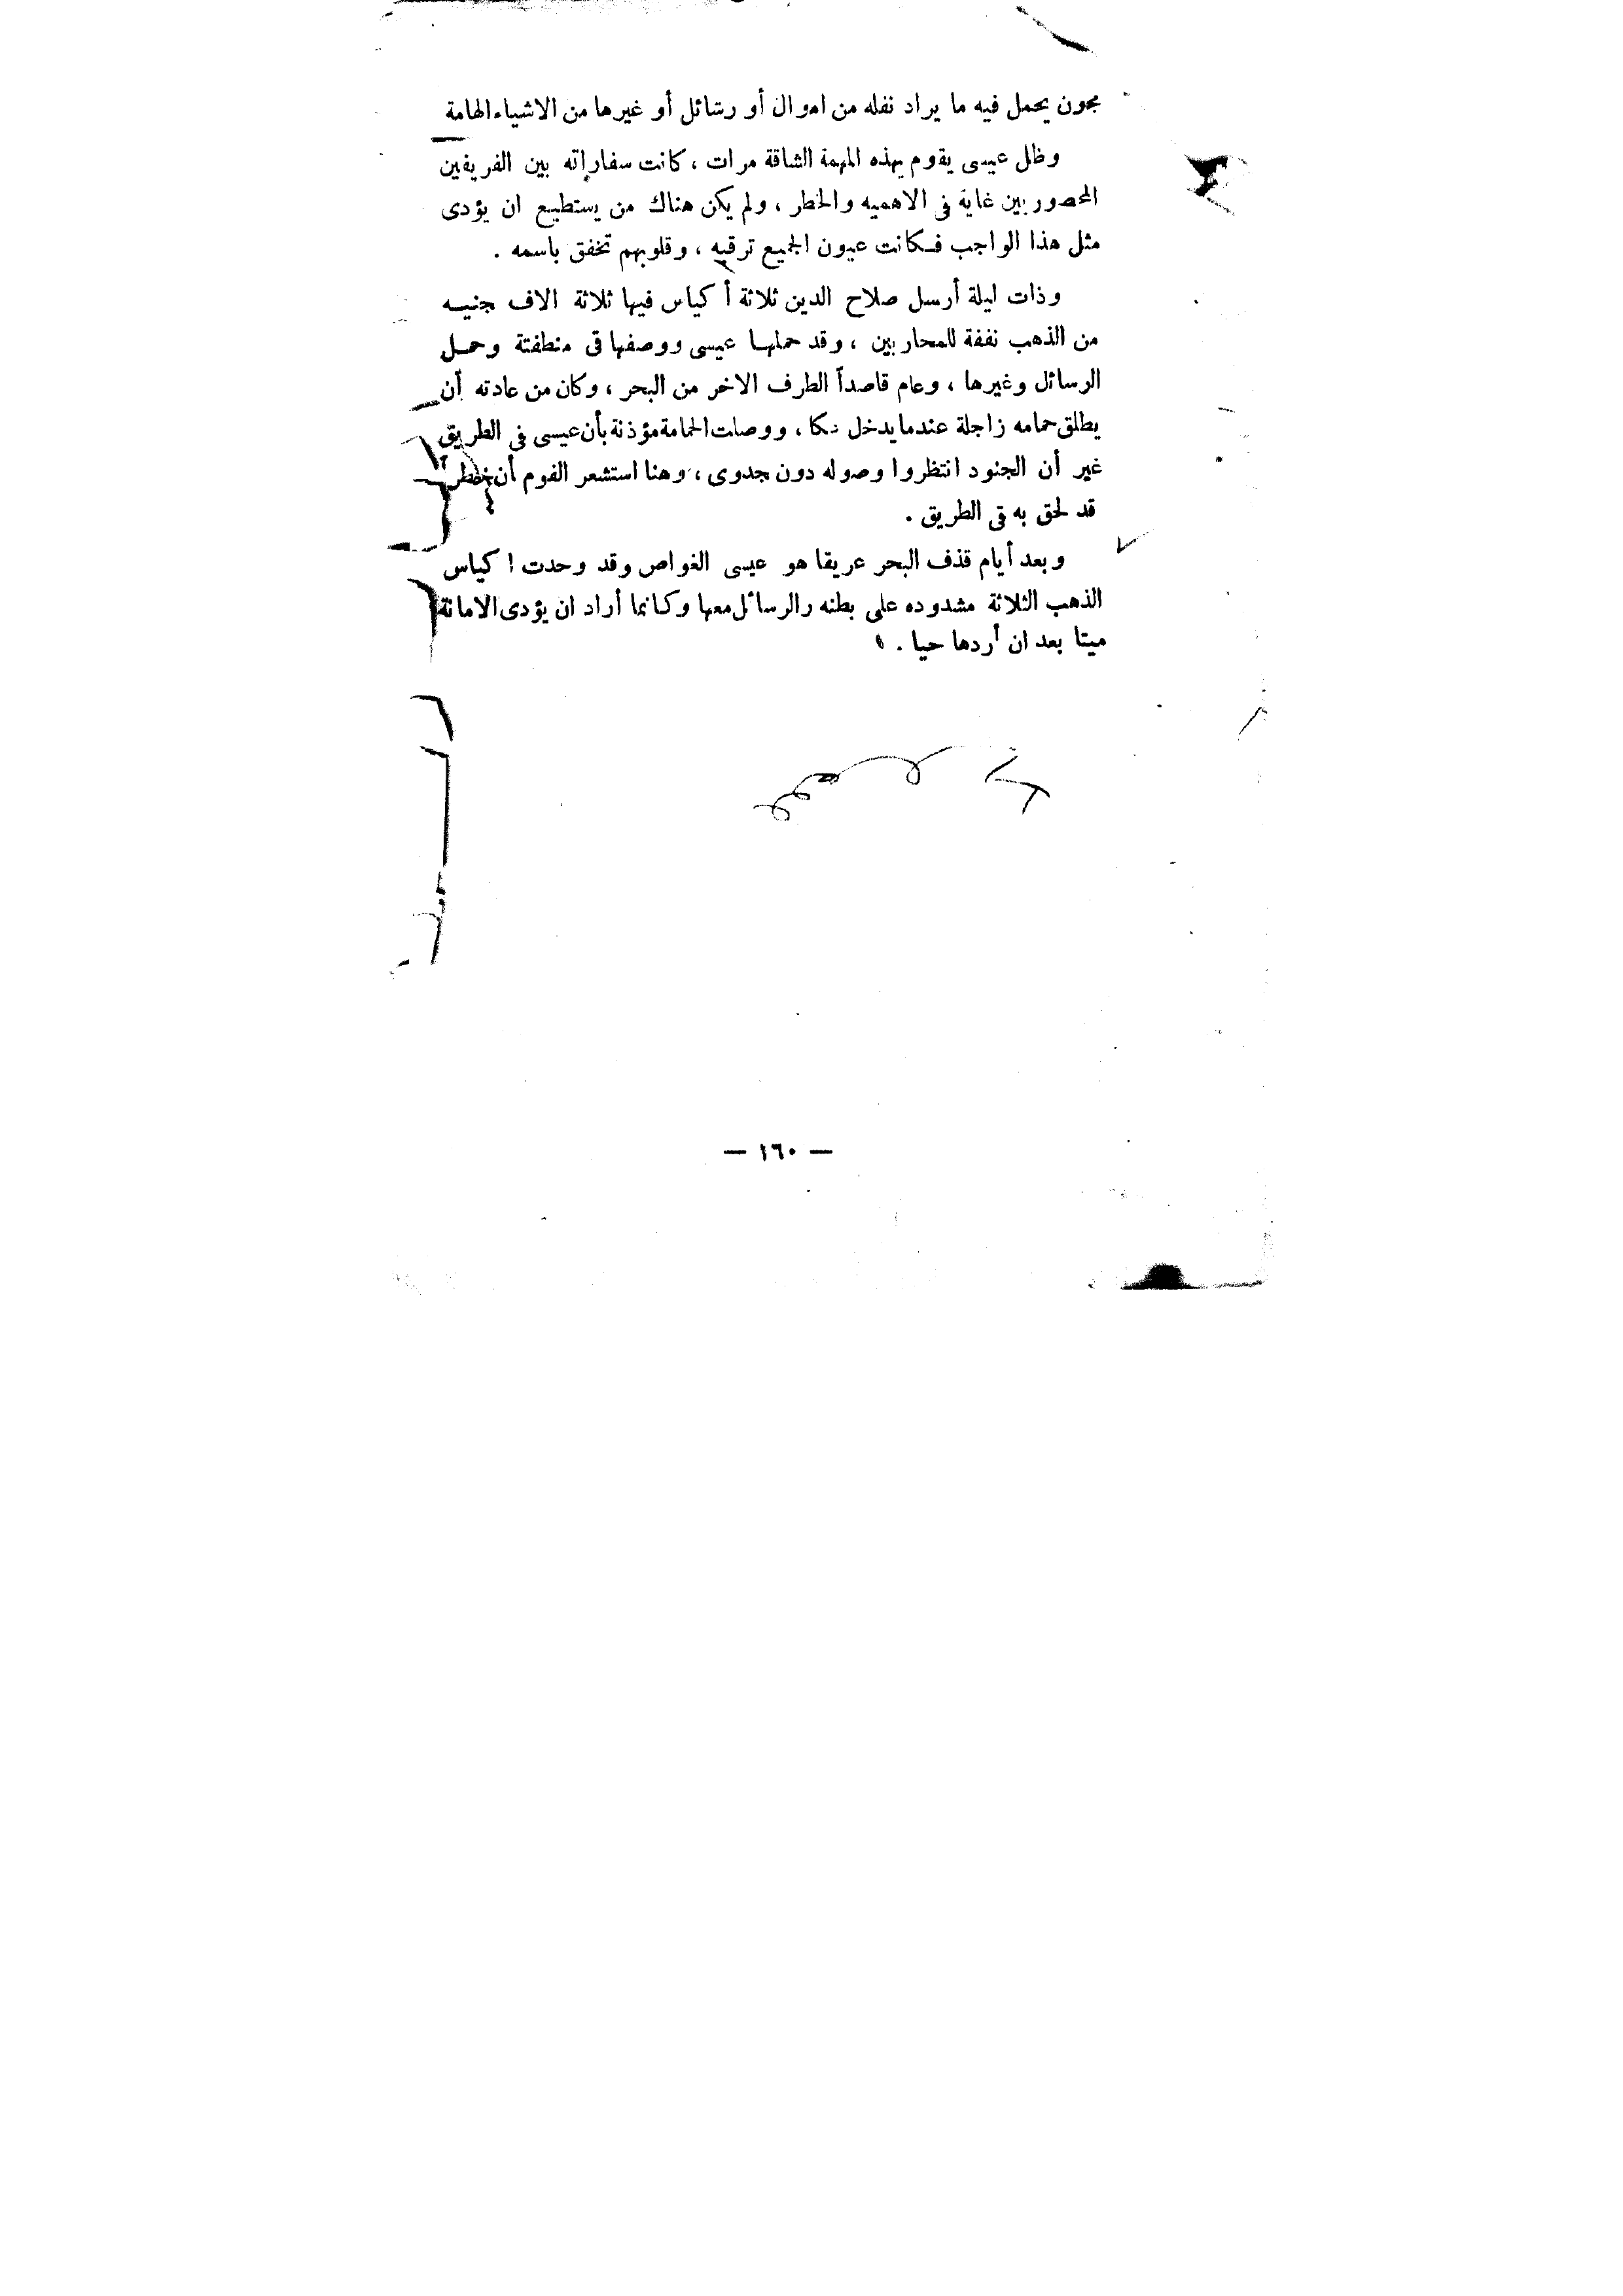 مجون يحمل فيه ما يراد نقله من اموال أو رسائل أو غيرها من الاشياء الهامة
وظل عيسى يقوم بهذه المهمة الشاقة مرات ، كانت سفاراته بين الفريقين
المحصور بين غاية فى الاهميه والخطر ، ولم يكن هناك من يستطيع ان يؤدى
مثل هذا الواجب فكانت عيون الجميع ترقبه ، وقلوبهم تخفق باسمه .
وذات ليلة أرسل صلاح الدين ثلاثة أكياس فيها ثلاثة الاف جنيه
من الذهب نفقة للمحاربين ، وقد حملها عيسى ووصفها فى منطقتة وحمل
الرسائل وغيرها ، وعام قاصداً الطرف الاخر من البحر ، وكان من عادته أن
يطلق حمامه زاجلة عندما يدخل عكا ، ووصلت الحمامة مؤذنة بأن عيسى فى الطريق
غير أن الجنود انتظروا وصوله دون جدوى ، وهنا استشعر القوم أن خطر
قد لحق به فى الطريق .
وبعد أيام قذف البحر عريقا هو عيسى الغواص وقد وحدت اكياس
الذهب الثلاثة مشدوده على بطنه والرسائل معها وكانما أراد ان يؤدى الامانة
ميتا بعد ان أردها حيا .
— ١٦٠ —